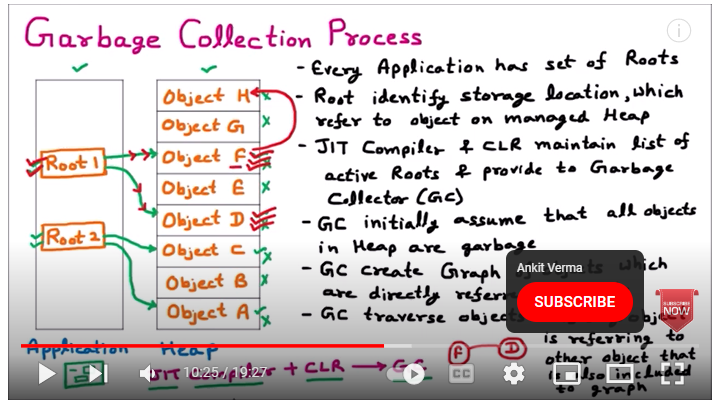 Garbage Collection Process
Object H
Object G
Object F
Object E
Object D
Object C
Object B
Object A
Root 1
Root 2
Application
Heap
- Every Application has set of Roots
- Root identify storage location, which
refer to object on managed Heap
- JIT Compiler & CLR maintain list of
active Roots & provide to Garbage
Collector (GC)
- GC initially assume that all objects
in Heap are garbage
- GC create Graph of objects which
are directly
- GC traverse objects
object
is referring to
other object that
is also included
to graph
F
D
JIT Compiler + CLR → GC
Ankit Verma
SUBSCRIBE
SUBSCRIBE
NOW
10:25 / 19:27
CC